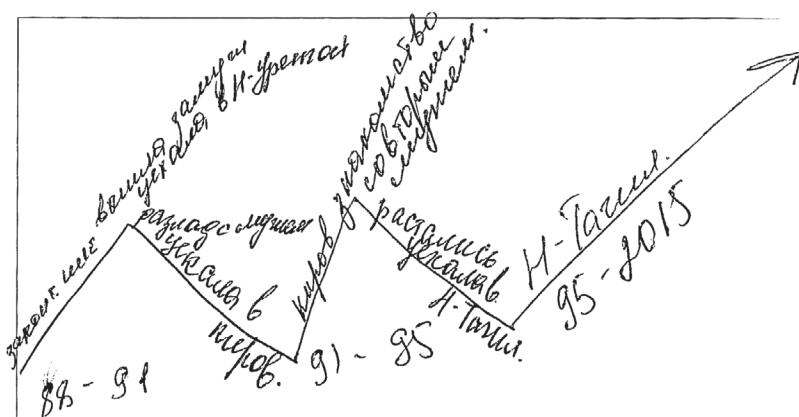 закон. шк.
вышла замуж
уехала в Н-Уренгой
разлад с мужем
уехала в
киров.
88 - 91
киров
знакомство
со вторым
мужем.
91 - 95
растались
уехала в
Н-Тагил.
Н-Тагил.
95-2015